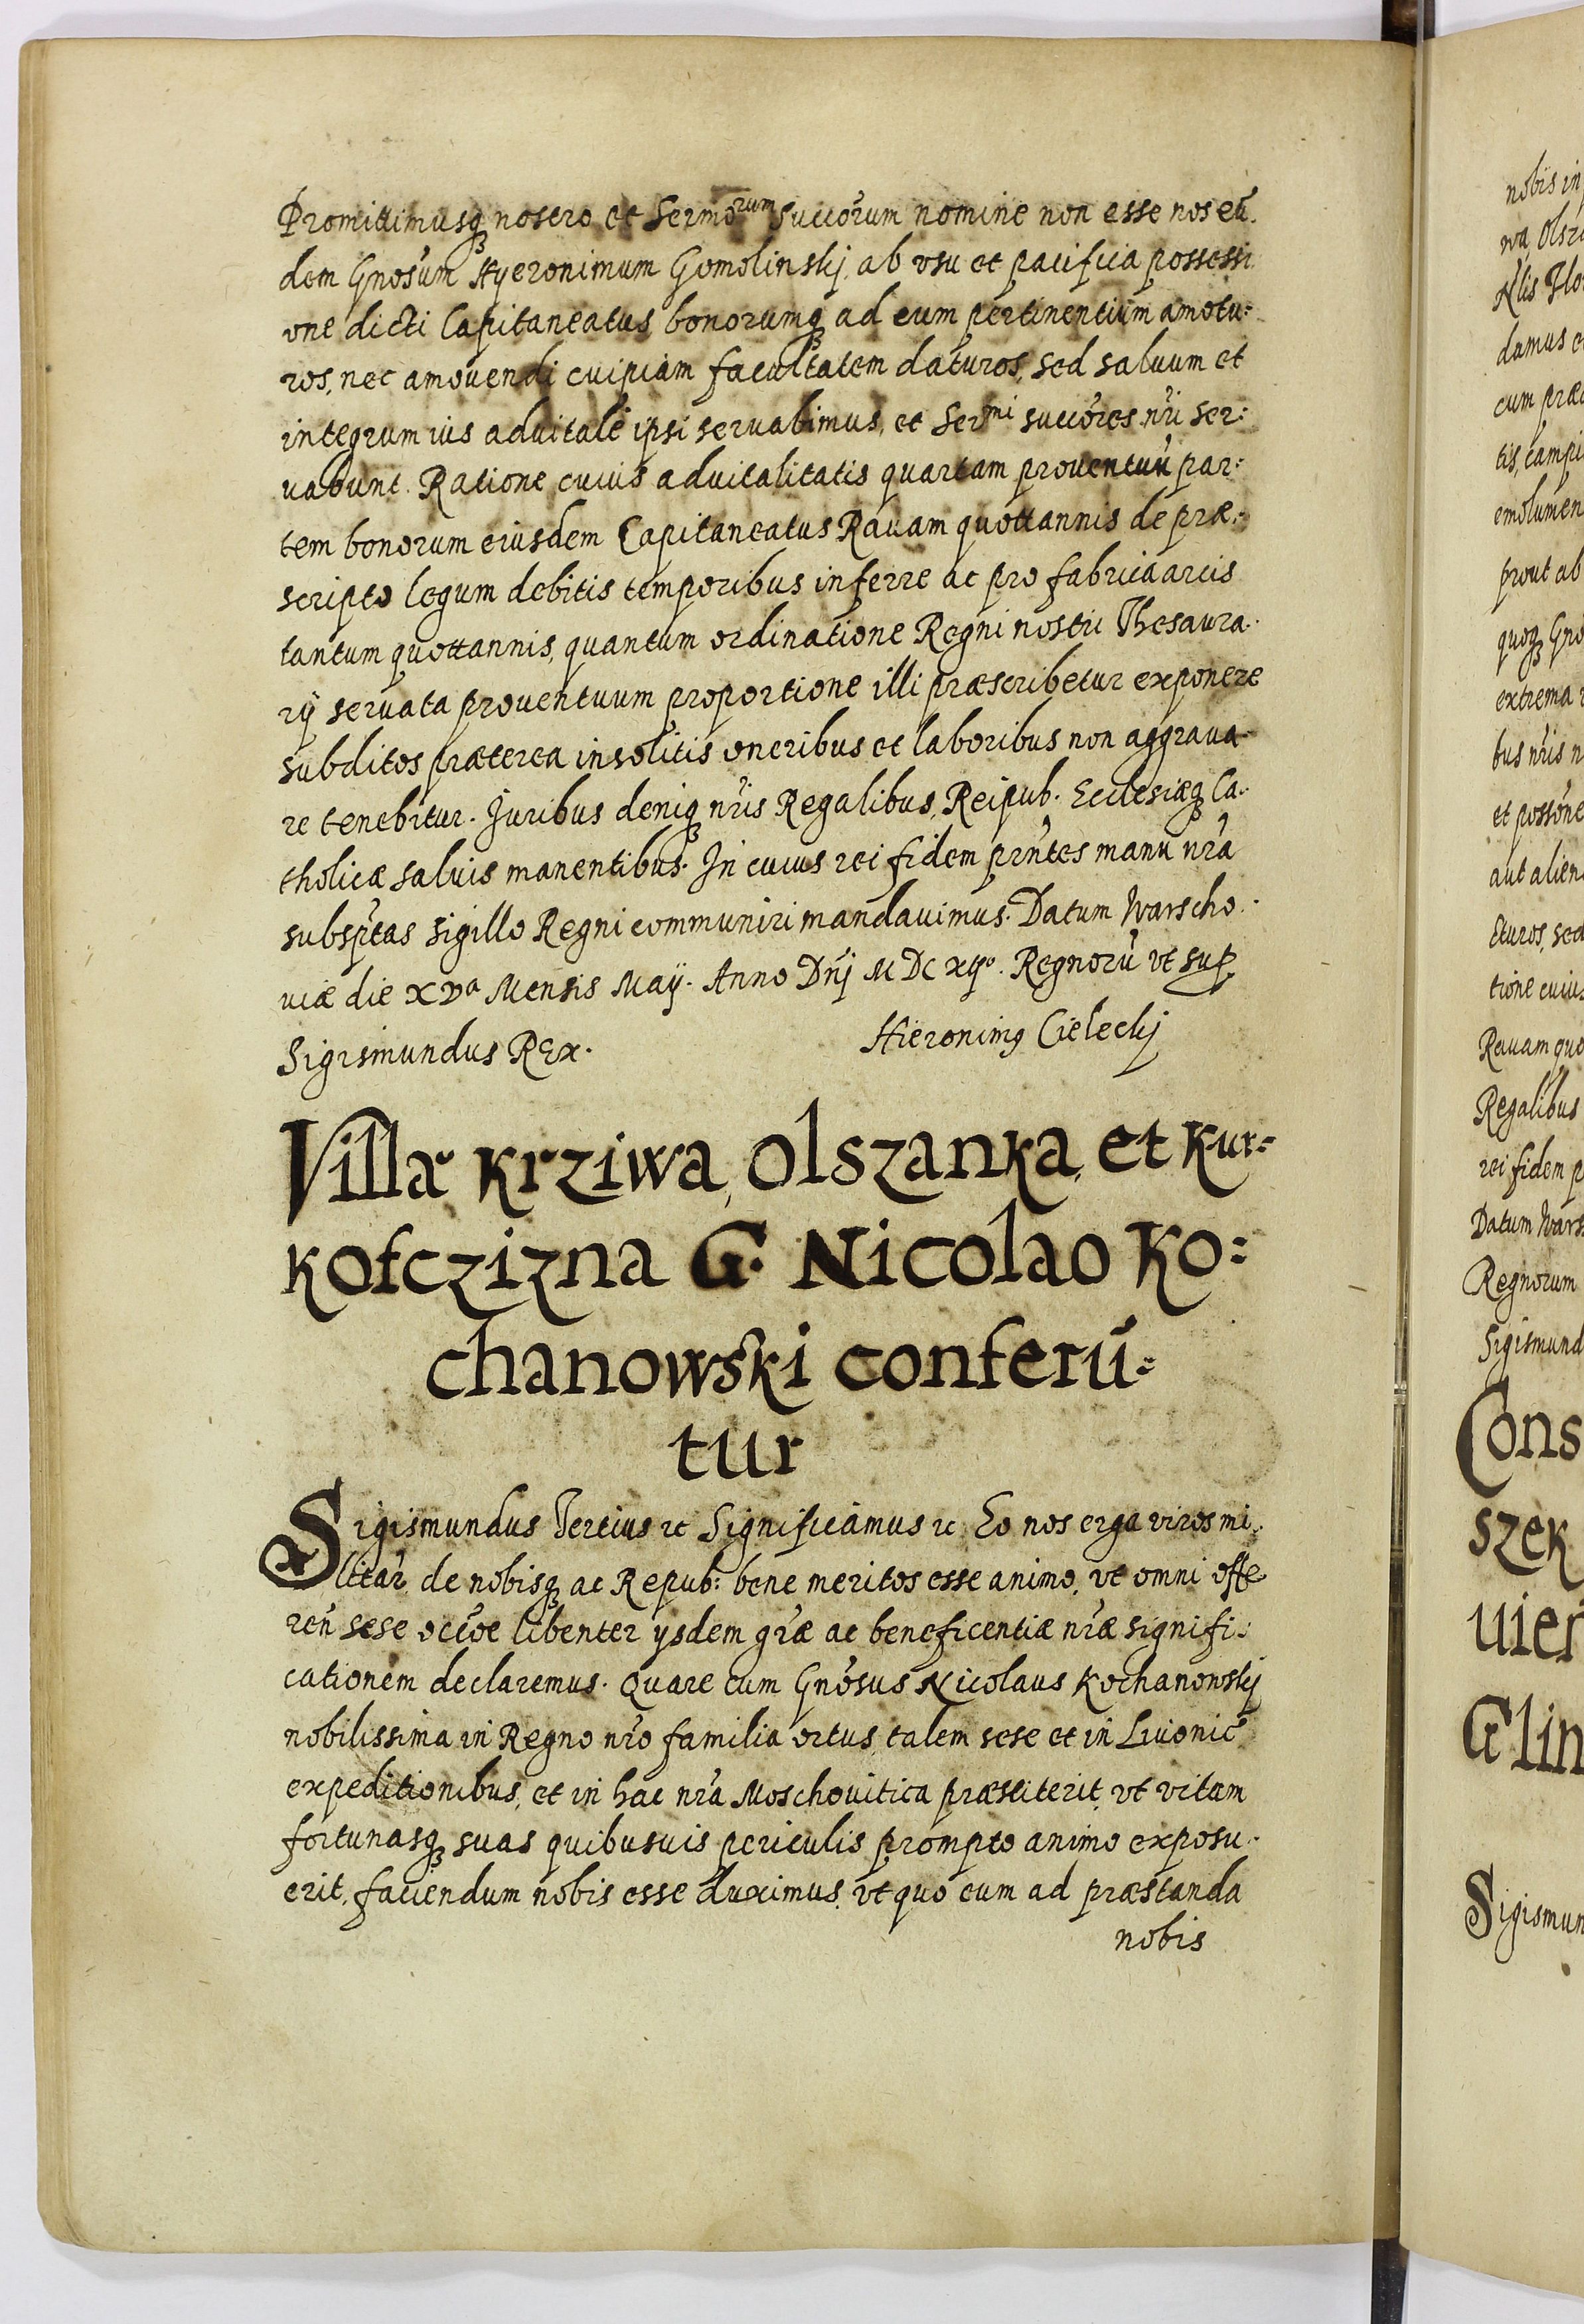 Promittimusq nostro et Sermorum Succorum nomine non esse nos eū.
dem Gnosum Hyeronimum Gomolinskj, ab vsu et pacifica possessi
one dicti Capitaneatus bonorumq ad eum pertinentium amotu:
ros, nec amouendi cuipiam facultatem daturos, sed saluum et
integrum ius aduitale ipsi seruabimus, et Sermi succores nri ser:
uabunt. Ratione cuius aduitalitatis quartam prouentuū par:
tem bonorum eiusdem Capitaneatus Rauam quottannis de præ:
scripto legum debitis temporibus inferre ac pro fabrica arcis
tantum quottannis, quantum ordinatione Regni nostri Thesaura.
rÿ seruata prouentuum proportione illi præscribetur exponere
subditos præterea insolitis oneribus et laboribus non aggraua
re tenebitur. Juribus deniq nris Regalibus, Reipub. Ecclesiæq Ca.
tholicæ saluis manentibus. In cuius rei fidem prntes manu nra
subsptas Sigillo Regni communiri mandauimus. Datum Warscho.
uiæ die XVa Mensis Maÿ. Anno Dnj M DC XIIo. Regnorū vt sup
Sigismundus Rex. Hieronimg Cieleckj
Villæ Krziwa, Olszanka, et Kur:
kofczizna G. Nicolao Ko:
chanowski conferū:
tur
Sigismundus Tertius rc Significamus rc Eo nos erga viros mi.
litar de nobisq ac Repub: bene meritos esse animo, vt omni offe
ren sese occoe libenter ysdem græ ac beneficentiæ nræ signifi:
cationem declaremus. Quare cum Gnosus Nicolaus Kochanowskj
nobilissima in Regno nro familia ortus, talem sese et in Liuonic
expeditionibus, et in hac nra Moschouitica præstiterit, vt vitam
fortunasq suas quibusuis periculis prompto animo exposu.
erit, faciendum nobis esse duximus, vt quo eum ad præstanda
nobis
nobis in
wa, Olsz
damus e
cum præ
tis, campi
emolumen
prout ab
quoq Gno
extrema
bus nris n
et possone
aut alien
cturos, sed
tione cuius
Rauam quo
Regalibus
rei fidem p
Datum Wars
Regnorum
Sigismund
Cons
szek
uier
Glin
Sigismun